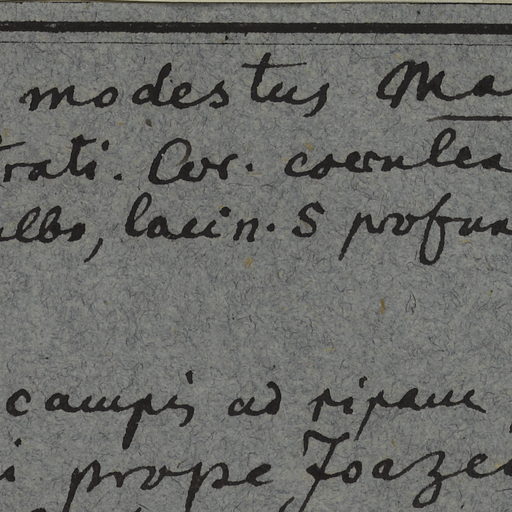 modestus Ma
trati. Cor. coerulea
albo, lacin. 5 profun
campis ad ripam
i prope Joazei